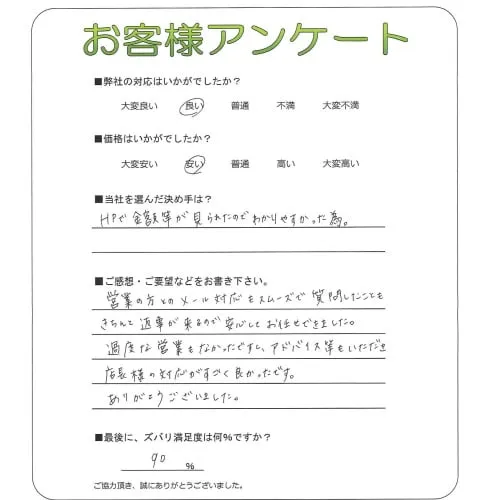 お客様アンケート
■弊社の対応はいかがでしたか？
大変良い 良い 普通 不満 大変不満
■価格はいかがでしたか？
大変安い 安い 普通 高い 大変高い
■当社を選んだ決め手は？
HPで金額等が見られたのでわかりやすかった為。
■ご感想・ご要望などをお書き下さい。
営業の方とのメール対応もスムーズで質問したことも
きちんと返事が来るので安心してお任せできました。
過度な営業もなかったですし、アドバイス等もいただき
店長様の対応がすごく良かったです。
ありがとうございました。
■最後に、ズバリ満足度は何％ですか？
90 %
ご協力頂き、誠にありがとうございました。